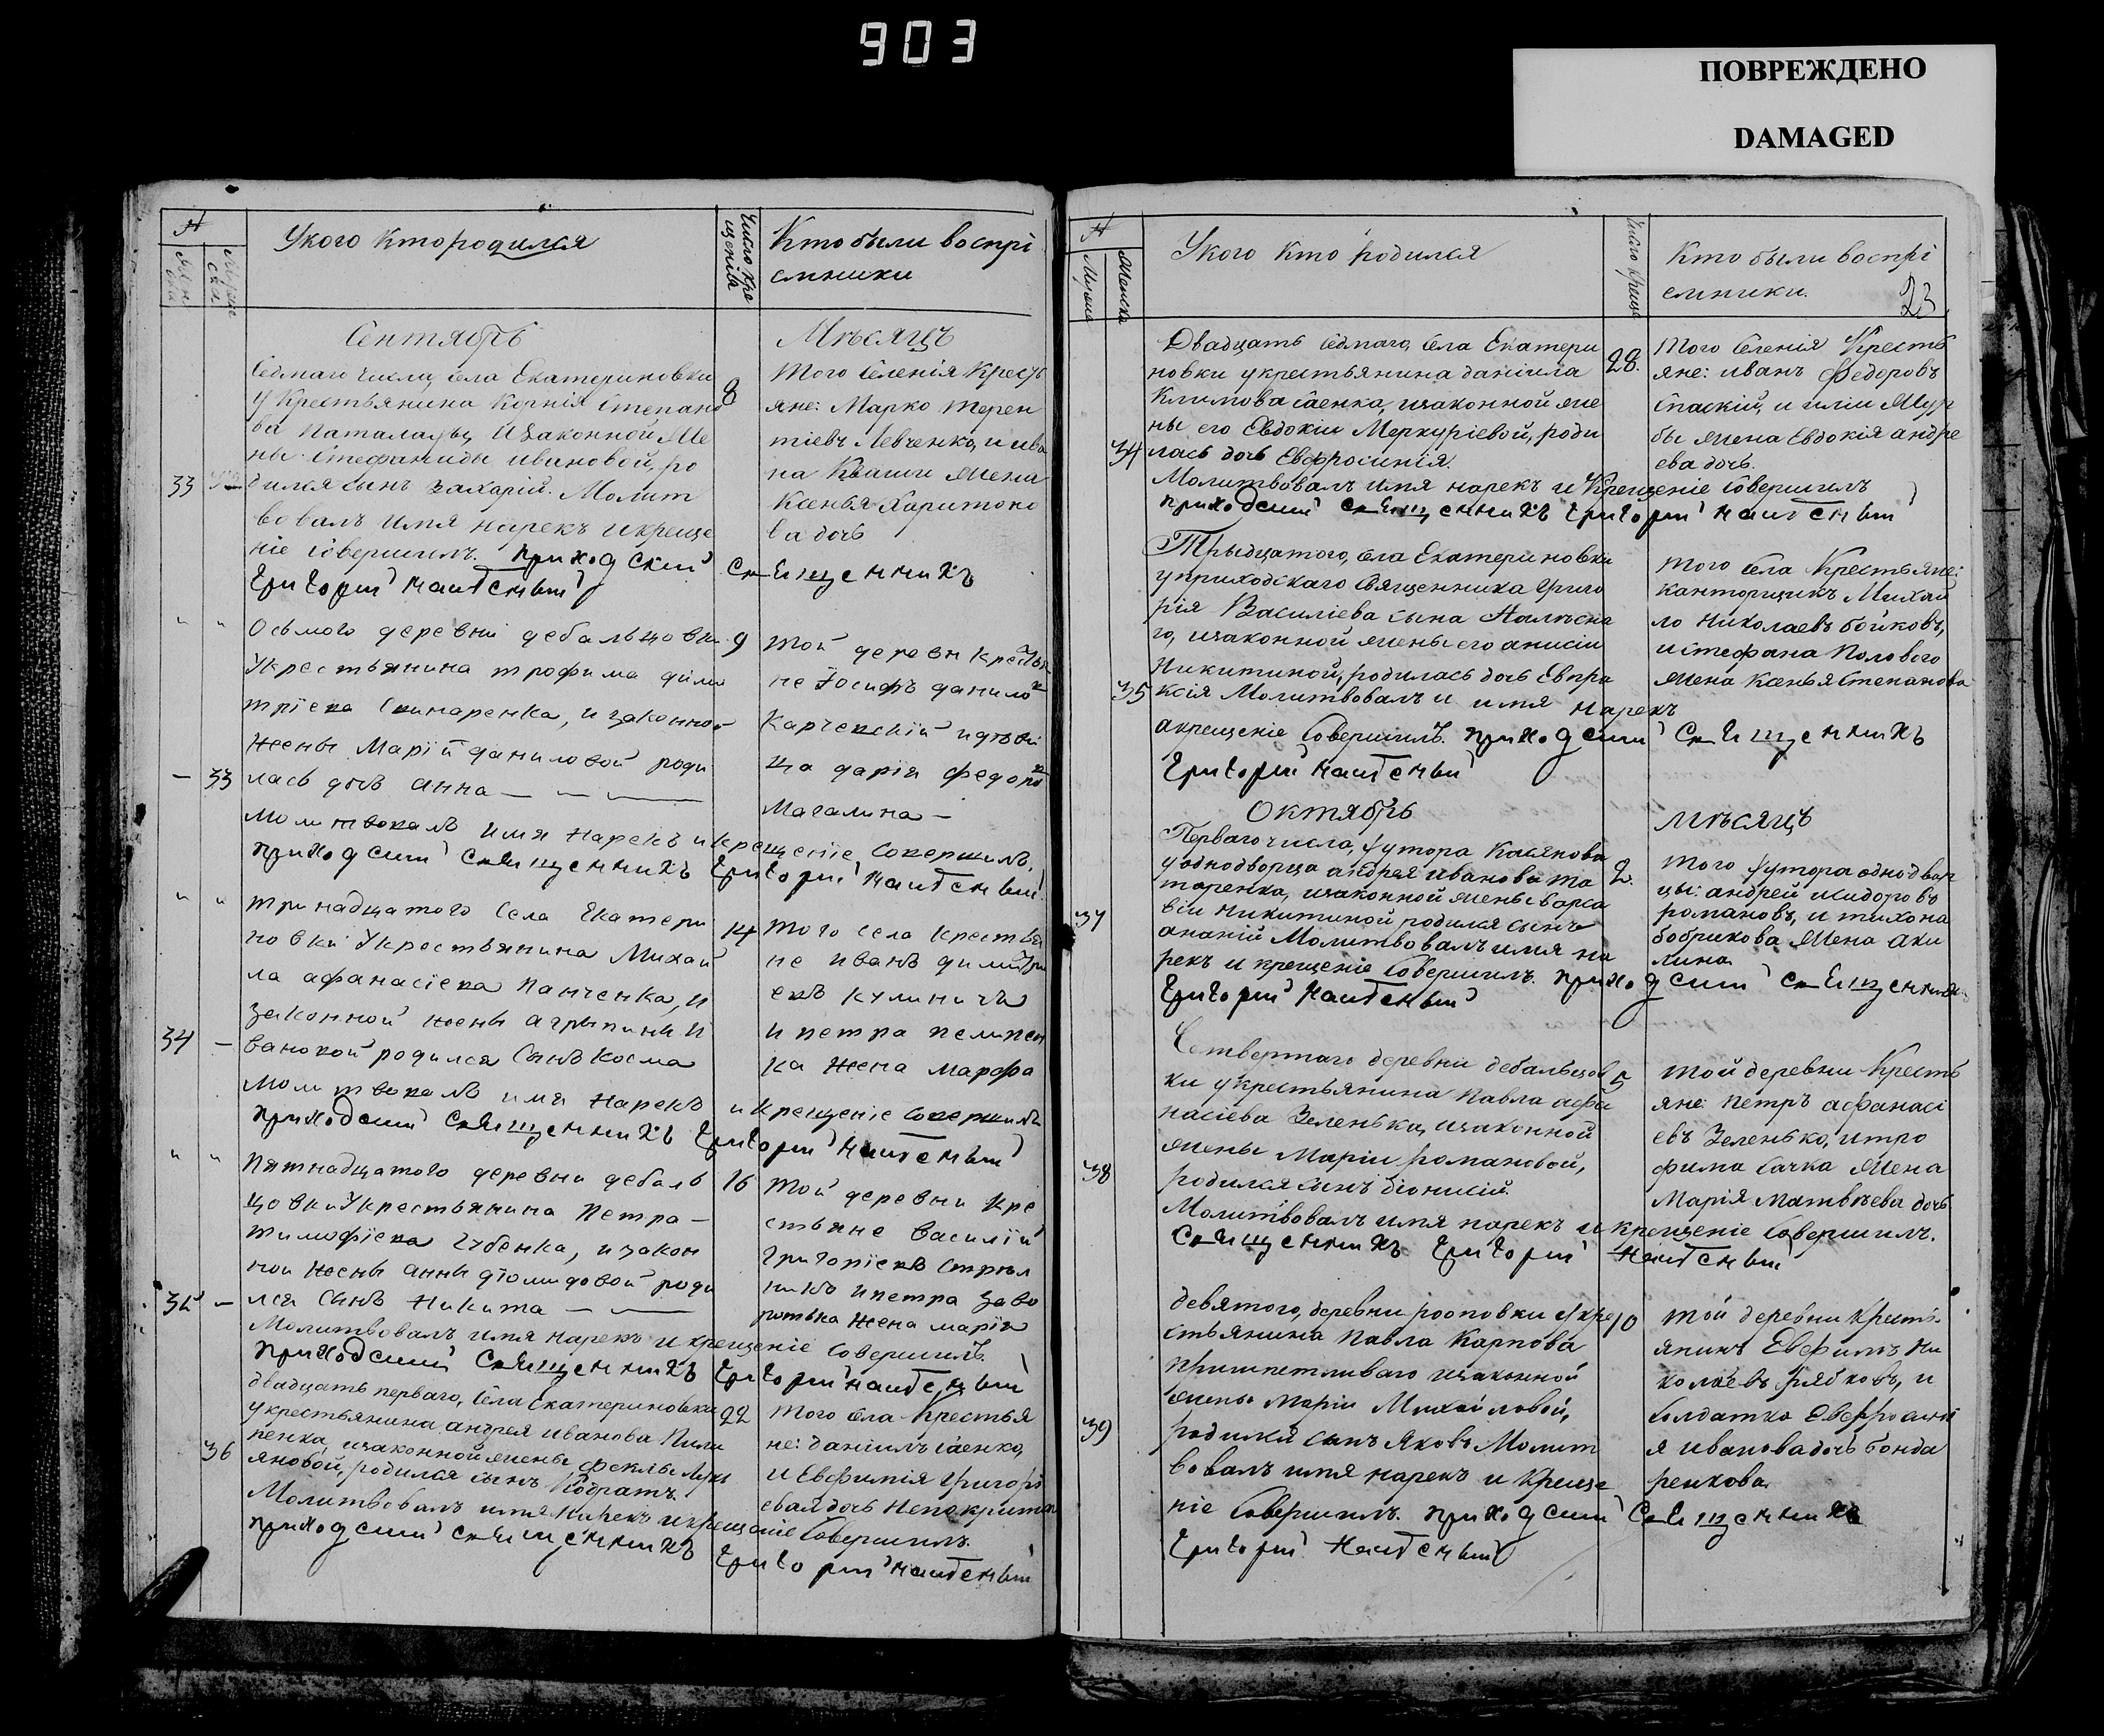 903
ПОВРЕЖДЕНО
DAMAGED
Укого Кто родился
Число кре
щенія
Кто были воспрі
емники
Сентябрь
Мѣсяцъ
Седмаго числа, села Екатериновки
у Крестьянина Корнія Степано
ва Изаконной Же
ны Стефаниды ивановой, ро
33
дился сынъ захарій. Молит
вовалъ имя нарекъ и креще
ніе Совершилъ. приходскій
Григорій
8
Того Селенія Кресть
яне: Марко терен
тіевъ Левченко, и ива
на Кваши Жена
Ксенья Харитоно
ва дочь
Священникъ
Осьмого деревни дебальцовки
Укрестьянина трофима дими
тріева Свинаренка, и законной
жены Маріи даниловой роди
33
лась дочь анна
Молитвовалъ имя Нарекъ и крещеніе Совершилъ.
приходскій Священникъ Григорій
9
той деревн крестья
не Іосифъ данилов
и дѣви
ца дарія федоро
Магалина
тринадцатого Села Екатери
новки Укрестьянина Михай
ла афанасіева Панченка, и
законной жены агрыпины и
34
вановой родился Сынъ Косма
Молитвовалъ имя Нарекъ и Крещеніе Совершилъ
приходскій Священникъ Григорій
14
того села крестья
не иванъ димитри
евъ кулиничъ
и петра пелипен
ка жена марфа
Пятнадцатого деревни дебаль
цовки Укрестьянина Петра
тимофіева Губенка, и закон
ной жены анны діомидовой роди
35
лся Сынъ Никита
Молитвовалъ имя нарекъ и крещеніе Совершилъ.
приходскій Священникъ Григорій
16
той деревни кре
стьяне Василій
Григоріевъ Стрѣл
никъ ипетра
жена марія
двадцать перваго, Села Екатериновки
укрестьянина андрея иванова Пили
пенка, изаконной жены феклы
36
яновой, родился сынъ Кодратъ.
Молитвовалъ имя Нарекъ икрещеніе Совершилъ.
приходскій священникъ
Григорій
22
того Села Крестья
не: даніилъ саенко,
и Евфимія Григорі
ева дочь
Укого Кто родился
Число креще
Кто были воспрі
емники.
23
Двадцать седмаго, Села Екатери
новки укрестьянина даніила
Климова Саенка, изаконной же
ны его Евдокіи Меркуріевой, роди
34
лась дочь Евфросинія.
Молитвовалъ имя нарекъ и Крещеніе Совершилъ
приходскій священникъ Григорій
28.
Того Селенія Кресть
яне: иванъ Федоровъ
Спаскій, и иліи Жур
бы жена Евдокія андре
ева дочь.
Трыдцатого, Села Екатериновки
уприходскаго Священника Григо
рія Василіева сына
го, изаконной жены его анисіи
Никитиной, родилась дочь Евпра
35
ксія Молитвовалъ и имя нарекъ
акрещеніе Совершилъ. приходскій Священникъ
Григорій
того Села Крестьяне:
канторщикъ Михай
ло Николаевъ бойковъ,
истефана Полового
жена Ксенья Степанова
Октябрь
Мѣсяцъ
Перваго числа, хутора Касянова
уоднодворца андрея иванова та
таренка, изаконной жены варва
37
ры Никитиной родился сынъ
ананій Молитвовалъ имя на
рекъ и крещеніе Совершилъ. приходскій священникъ
Григорій
2.
того хутора однодвор
цы: андрей исидоровъ
романовъ, и тихона
бобрикова жена аки
лина
Четвертаго деревни дебальцов
ки укрестьянина Павла афа
насіева Зеленька, изаконной
38
жены Маріи романовой,
родился сынъ діонисій.
Молитвовалъ имя нарекъ и крещеніе Совершилъ.
Священникъ Григорій
5
той деревни Кресть
яне: петръ афанасі
евъ Зеленько, итро
фима Сачка жена
Марія Матвѣева дочь
девятого, деревни укре
стьянина Павла Карпова
изаконной
жены маріи Михайловой,
39
родился сынъ Яковъ Молит
вовалъ имя нарекъ и Креще
ніе Совершилъ. приходскій Священникъ
Григорій
10
той деревни Кресть
янинъ Евфимъ Ни
колаевъ рябковъ, и
солдатка Евфросині
я иванова дочь бонда
ренкова.